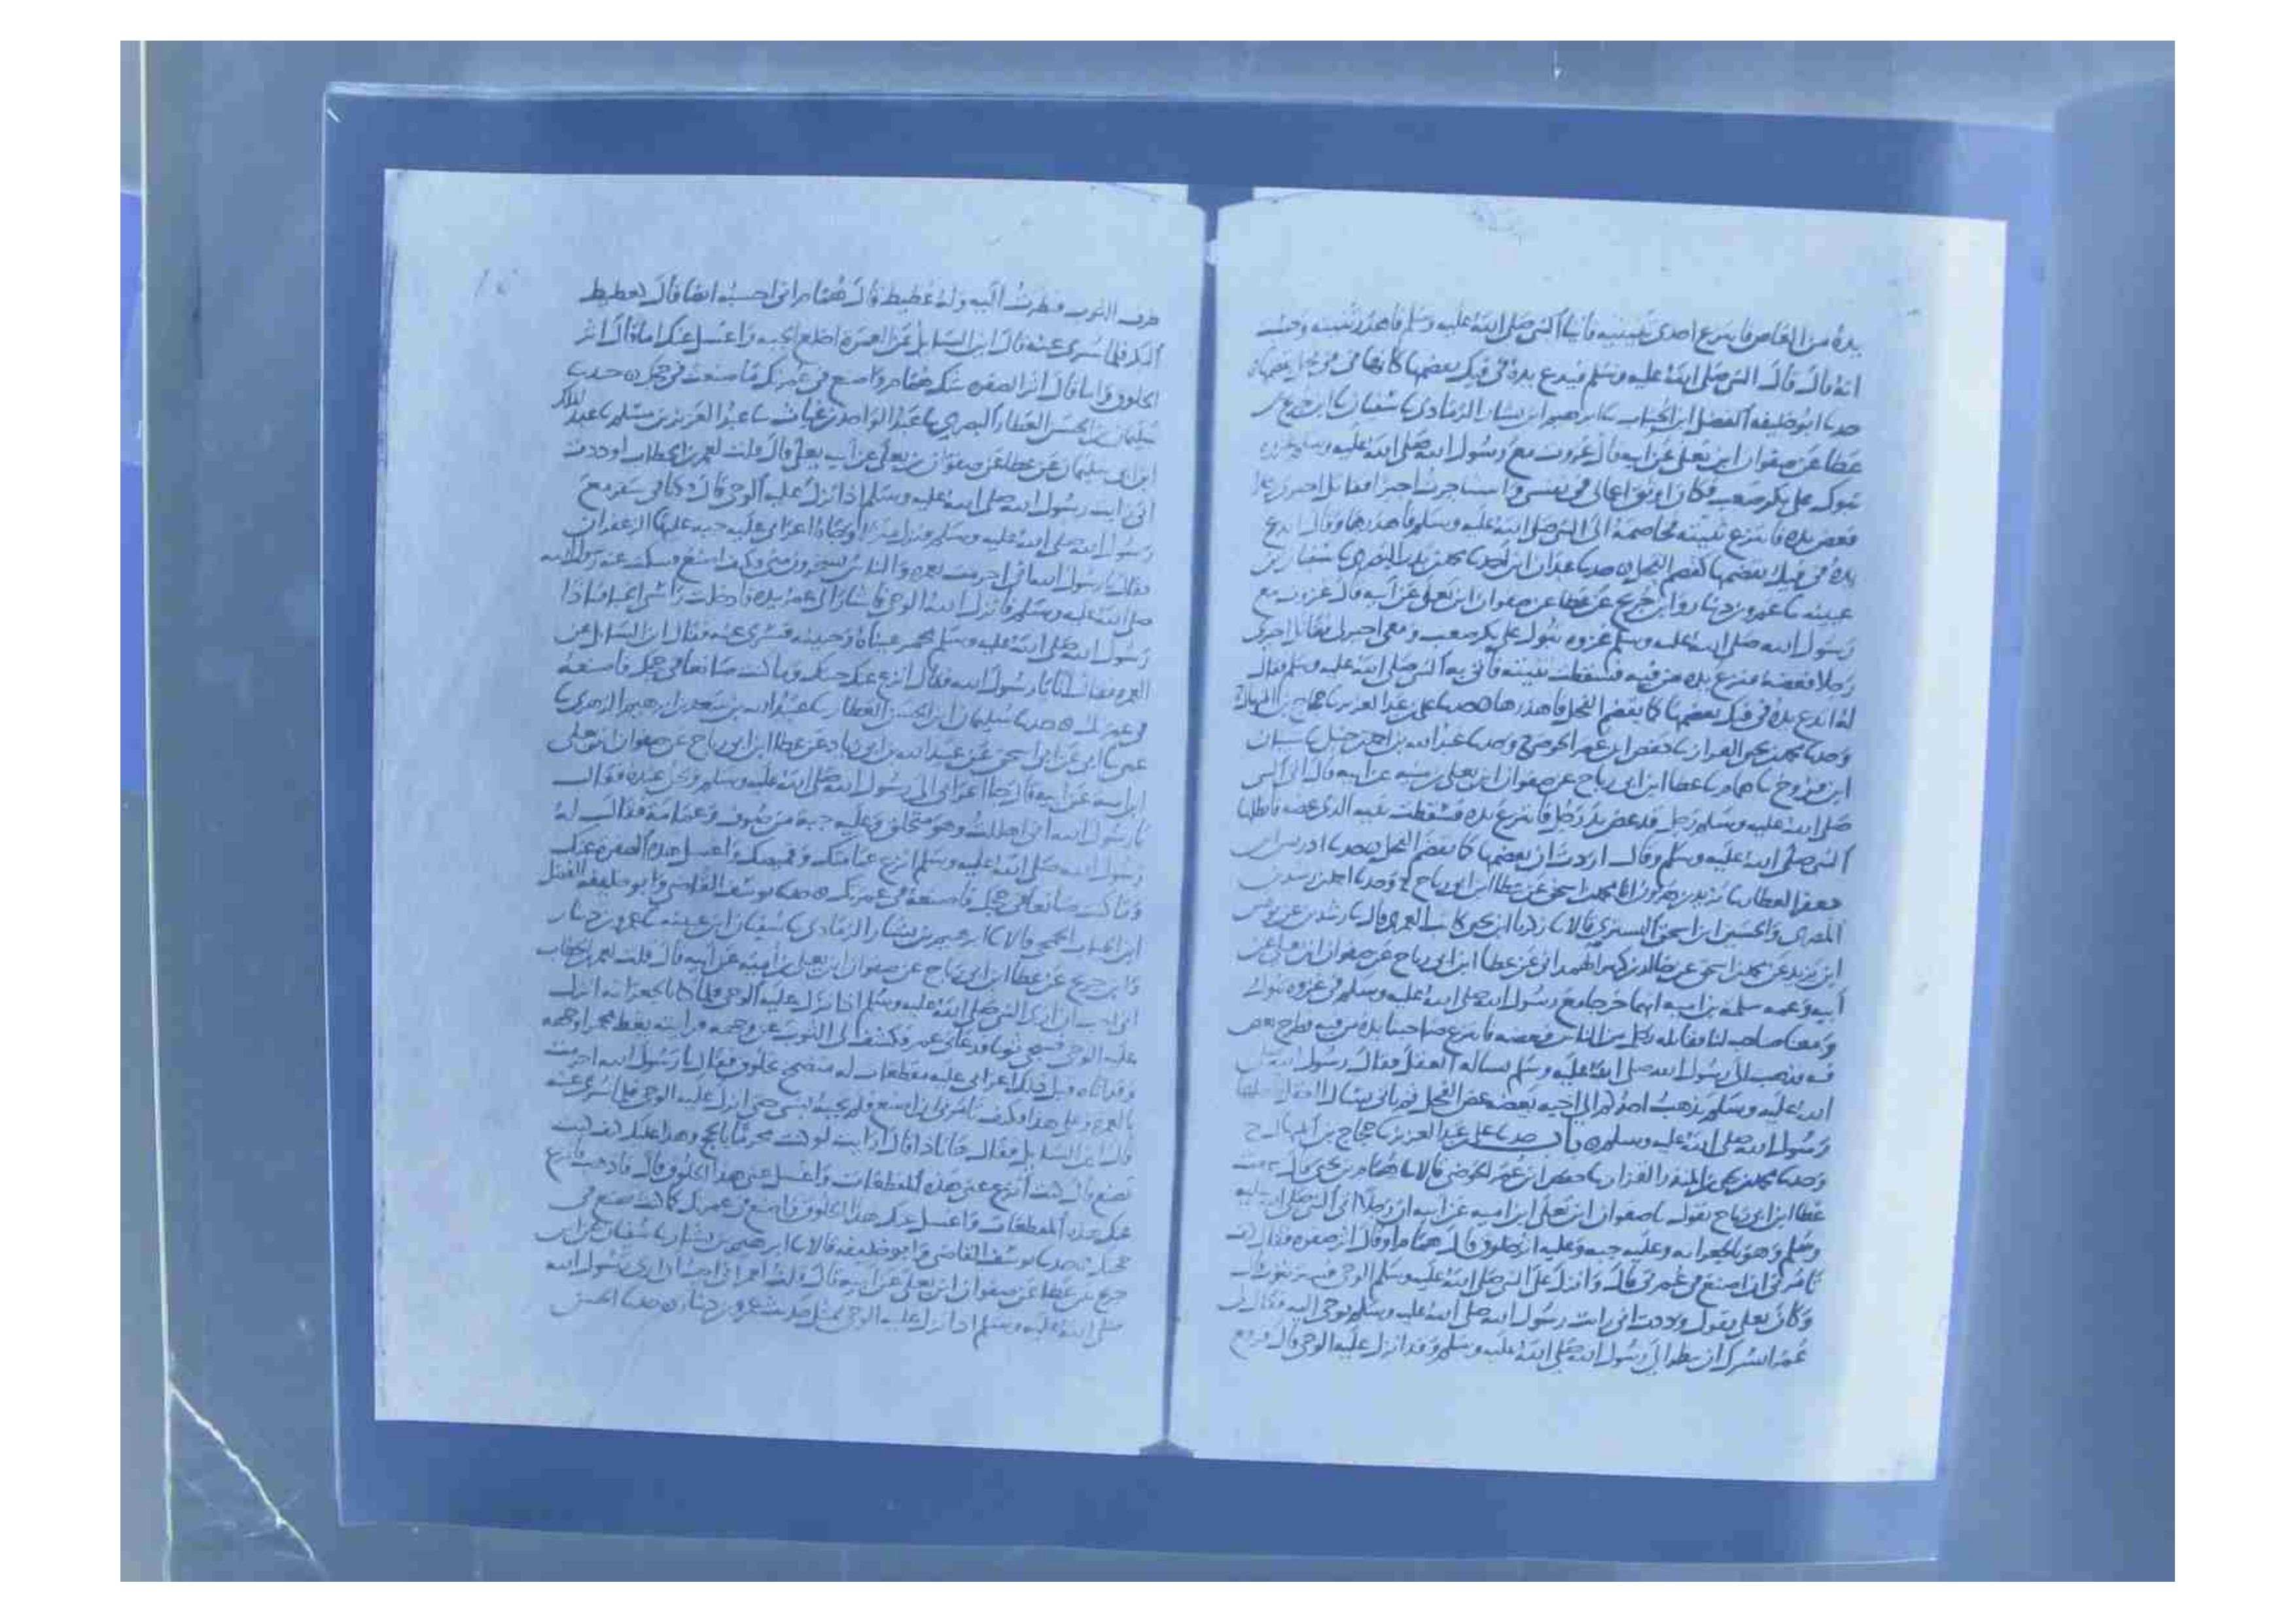 يده من العاض فانتزع احدى ثنيتيه فاتيا النبي صلى الله عليه وسلم فاهدر ثنيته وحسبت
انه قال قال النبي صلى الله عليه وسلم فيدع يده في فيك تعضمها كانها في في فحل يقضمها
حدثنا ابو خليفه الفضل ابن الحباب ثنا ابرهيم ابن بشار الرمادي ثنا سفيان ثنا ابن جريج عن
عطا عن صفوان ابن يعلى عن ابيه قال غزوت مع رسول الله صلى الله عليه وسلم غزوه
تبوك على بكر صعب فكان اوثق اعمالي في نفسي واستاجرت اجيرا فقاتل اجيري رجلا
فعض يده فانتزع ثنيته فخاصمه الى النبي صلى الله عليه وسلم فاهدرها وقال ايدع
يده في فيك تقضمها كقضم الفحل حدثنا عبدان ابن احمد ثنا محمد بن سفيان بن
عيينه ثنا عمرو بن دينار وابن جريج عن عطا عن صفوان ابن يعلى عن ابيه قال غزوت مع
رسول الله صلى الله عليه وسلم غزوه تبوك على بكر صعب ومعي اجير لي فقاتل اجيري
رجلا فعضه فنزع يده من فيه فسقطت ثنيته فاتى به النبي صلى الله عليه وسلم فقال
له ايدع يده في فيك تعضمها كما يقضم الفحل فاهدرها حدثنا علي بن عبد العزيز ثنا حجاج بن المنهال ح
وحدثنا محمد بن يحيى القزاز ثنا حفص ابن عمر الحوضي ح وحدثنا عبد الله بن احمد بن حنبل ثنا شيبان
ابن فروخ ثنا همام ثنا عطا ابن ابي رباح عن صفوان ابن يعلى بن منيه عن ابيه قال اتى النبي
صلى الله عليه وسلم رجل قد عض يد رجل فانتزع يده فسقطت ثنيه الذي عضه فابطلها
النبي صلى الله عليه وسلم وقال اردت ان تعضمها كما يقضم الفحل حدثنا ادريس ابن
جعفر العطار ثنا يزيد بن هرون انا محمد بن اسحق عن عطا ابن ابي رباح ح وحدثنا احمد بن رشدين
المصري والحسين ابن اسحق التستري قالا ثنا زكريا ابن يحيى كاتب العمري قال ثنا رشدين عن يونس
ابن يزيد عن محمد بن اسحق عن خالد بن كثير الهمداني عن عطا ابن ابي رباح عن صفوان ابن يعلى عن
ابيه وعمه سلمة بن اميه انهما خرجا مع رسول الله صلى الله عليه وسلم في غزوه تبوك
ومعنا صاحب لنا فقاتله رجل من الناس فعضه فانتزع صاحبنا يده من فيه فطرح بعض
فيه فذهب الى رسول الله صلى الله عليه وسلم يساله العقل فقال رسول الله صلى
الله عليه وسلم يذهب احدكم الى اخيه يعضه عض الفحل ثم ياتي يسال العقل فابطلها
رسول الله صلى الله عليه وسلم باب حدثنا علي بن عبد العزيز ثنا حجاج بن المنهال ح
وحدثنا محمد بن يحيى بن المنذر القزاز ثنا حفص ابن عمر الحوضي قالا ثنا همام بن يحيى قال سمعت
عطا ابن ابي رباح يقول ثنا صفوان ابن يعلى ابن اميه عن ابيه ان رجلا اتى النبي صلى الله عليه
وسلم وهو بالجعرانه وعليه جبه وعليه اثر خلوق قال همام او قال اثر صفره فقال كيف
تامرني ان اصنع في عمرتي قال وانزل على النبي صلى الله عليه وسلم الوحي فستر بثوب قال
وكان يعلى يقول وددت اني رايت رسول الله صلى الله عليه وسلم يوحى اليه فقال لي
عمر ايسرك ان تنظر الى رسول الله صلى الله عليه وسلم وقد انزل عليه الوحي قال فرفع
طرف الثوب فنظرت اليه وله غطيط قال همام اني احسبه ايضا قال كغطيط
البكر فلما سري عنه قال اين السايل عن العمرة اخلع الجبه واغسل عنك اما قال اثر
الخلوق واما قال اثر الصفره شك همام واصنع في عمرتك ما صنعت في حجك حدثنا
سليمان بن الحسن العطار البصري ثنا عبد الواحد بن غياث ثنا عبد العزيز بن مسلم ثنا عبد الملك
ابن ابي سليمان عن عطا عن صفوان بن يعلى عن ابيه يعلى قال قلت لعمر بن الخطاب لوددت
اني رايت رسول الله صلى الله عليه وسلم اذا نزل عليه الوحي قال وكنا في سفر مع
رسول الله صلى الله عليه وسلم فنزل منزلا وجاه اعرابي عليه جبه عليها الزعفران
فقال يا رسول الله اني احرمت بعمره والناس يسخرون مني وكيف اصنع فسكت عنه رسول الله
صلى الله عليه وسلم فانزل الله الوحي فاشار الى عمر بيده فادخلت راسي الخبا فاذا
رسول الله صلى الله عليه وسلم محمر عيناه وجبينه فسري عنه فقال اين السايل عن
العمره فقال انا يا رسول الله فقال انزع عنك جبتك وما كنت صانعا في حجك فاصنعه
في عمرتك حدثنا سليمان ابن الحسن العطار ثنا عبيد الله بن سعد بن ابرهيم الزهري ثنا
عمي ثنا ابي عن ابن اسحق عن عبيد الله بن ابي زياد عن عطا ابن ابي رباح عن صفوان ابن يعلى
ابن اميه عن ابيه قال جا اعرابي الى رسول الله صلى الله عليه وسلم ونحن عنده فقال
يا رسول الله اني اهللت وهو متخلق وعليه جبة من صوف وعمامة فقال له
رسول الله صلى الله عليه وسلم انزع عمامتك وقميصك واغسل هذه الصفرة عنك
وما كنت صانعا في حجك فاصنعه في عمرتك حدثنا يوسف القاضي وابو خليفه الفضل
ابن الحباب الجمحي قالا ثنا ابرهيم بن بشار الرمادي ثنا سفيان ابن عيينه ثنا عمرو بن دينار
وابن جريج عن عطا ابن ابي رباح عن صفوان ابن يعلى بن امية عن ابيه قال قلت لعمر بن الخطاب
اني احب ان ارى النبي صلى الله عليه وسلم اذا نزل عليه الوحي فلما كنا بالجعرانه انزل
عليه الوحي فسجي ثوبا فدعاني عمر فكشف لي الثوب عن وجهه فرايته يغط محمرا وجهه
وقد اتاه قبل ذلك اعرابي عليه مقطعات له متضمخ بخلوق فقال يا رسول الله احرمت
بالعمره وعلي هذا فكيف تامرني ان اصنع فلم يجبه بشي حتى انزل عليه الوحي فلما سري عنه
قال اين السايل فقال ها انا ذا قال ارايت لو كنت محرما بالحج وهذا عليك كيف كنت
تصنع قال كنت انزع عني هذه المقطعات واغسل عني هذا الخلوق قال فاذهب فانزع
عنك هذه المقطعات واغسل عنك هذا الخلوق واصنع في عمرتك كما كنت تصنع في
حجك حدثنا يوسف القاضي وابو خليفه قالا ثنا ابرهيم بن بشار ثنا سفيان عن ابن
جريج عن عطا عن صفوان ابن يعلى عن ابيه قال قلت لعمر اني احب ان ارى رسول الله
صلى الله عليه وسلم اذا نزل عليه الوحي بمثل حديث عمرو بن دينار حدثنا الحسن